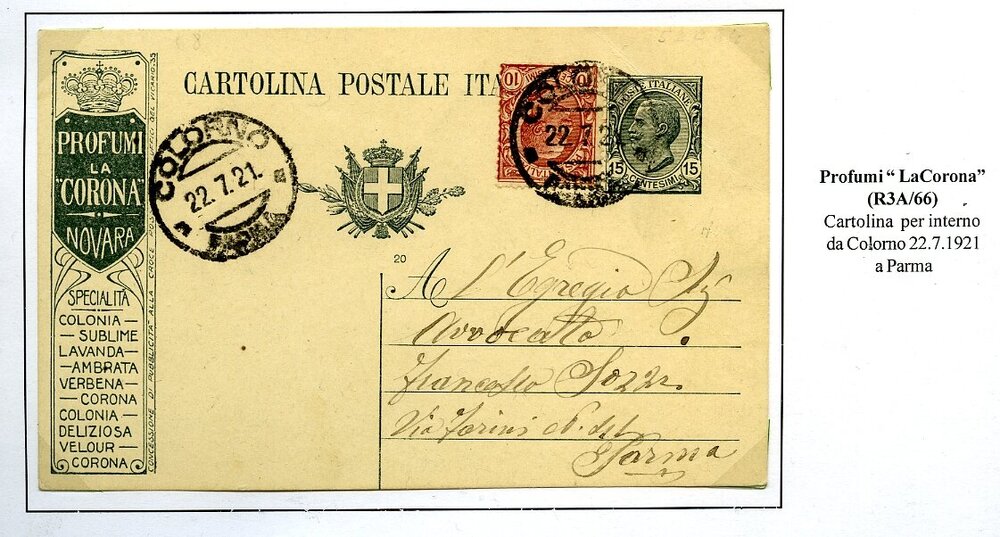 CARTOLINA POSTALE ITA
PROFUMI
LA
"CORONA"
NOVARA
SPECIALITÀ
COLONIA —
— SUBLIME
LAVANDA —
— AMBRATA
VERBENA —
— CORONA
COLONIA —
DELIZIOSA
VELOUR —
CORONA
CONCESSIONE DI PUBBLICITÀ ALLA CROCE
COLORNO
22.7.21.
10 10
COLO
22.7.21
POSTE ITALIANE
15 15
CENTESIMI
20
A l'Egregio Sig
Avvocato
Francesco
Via Farini N.
Parma
Profumi " LaCorona"
(R3A/66)
Cartolina per interno
da Colorno 22.7.1921
a Parma